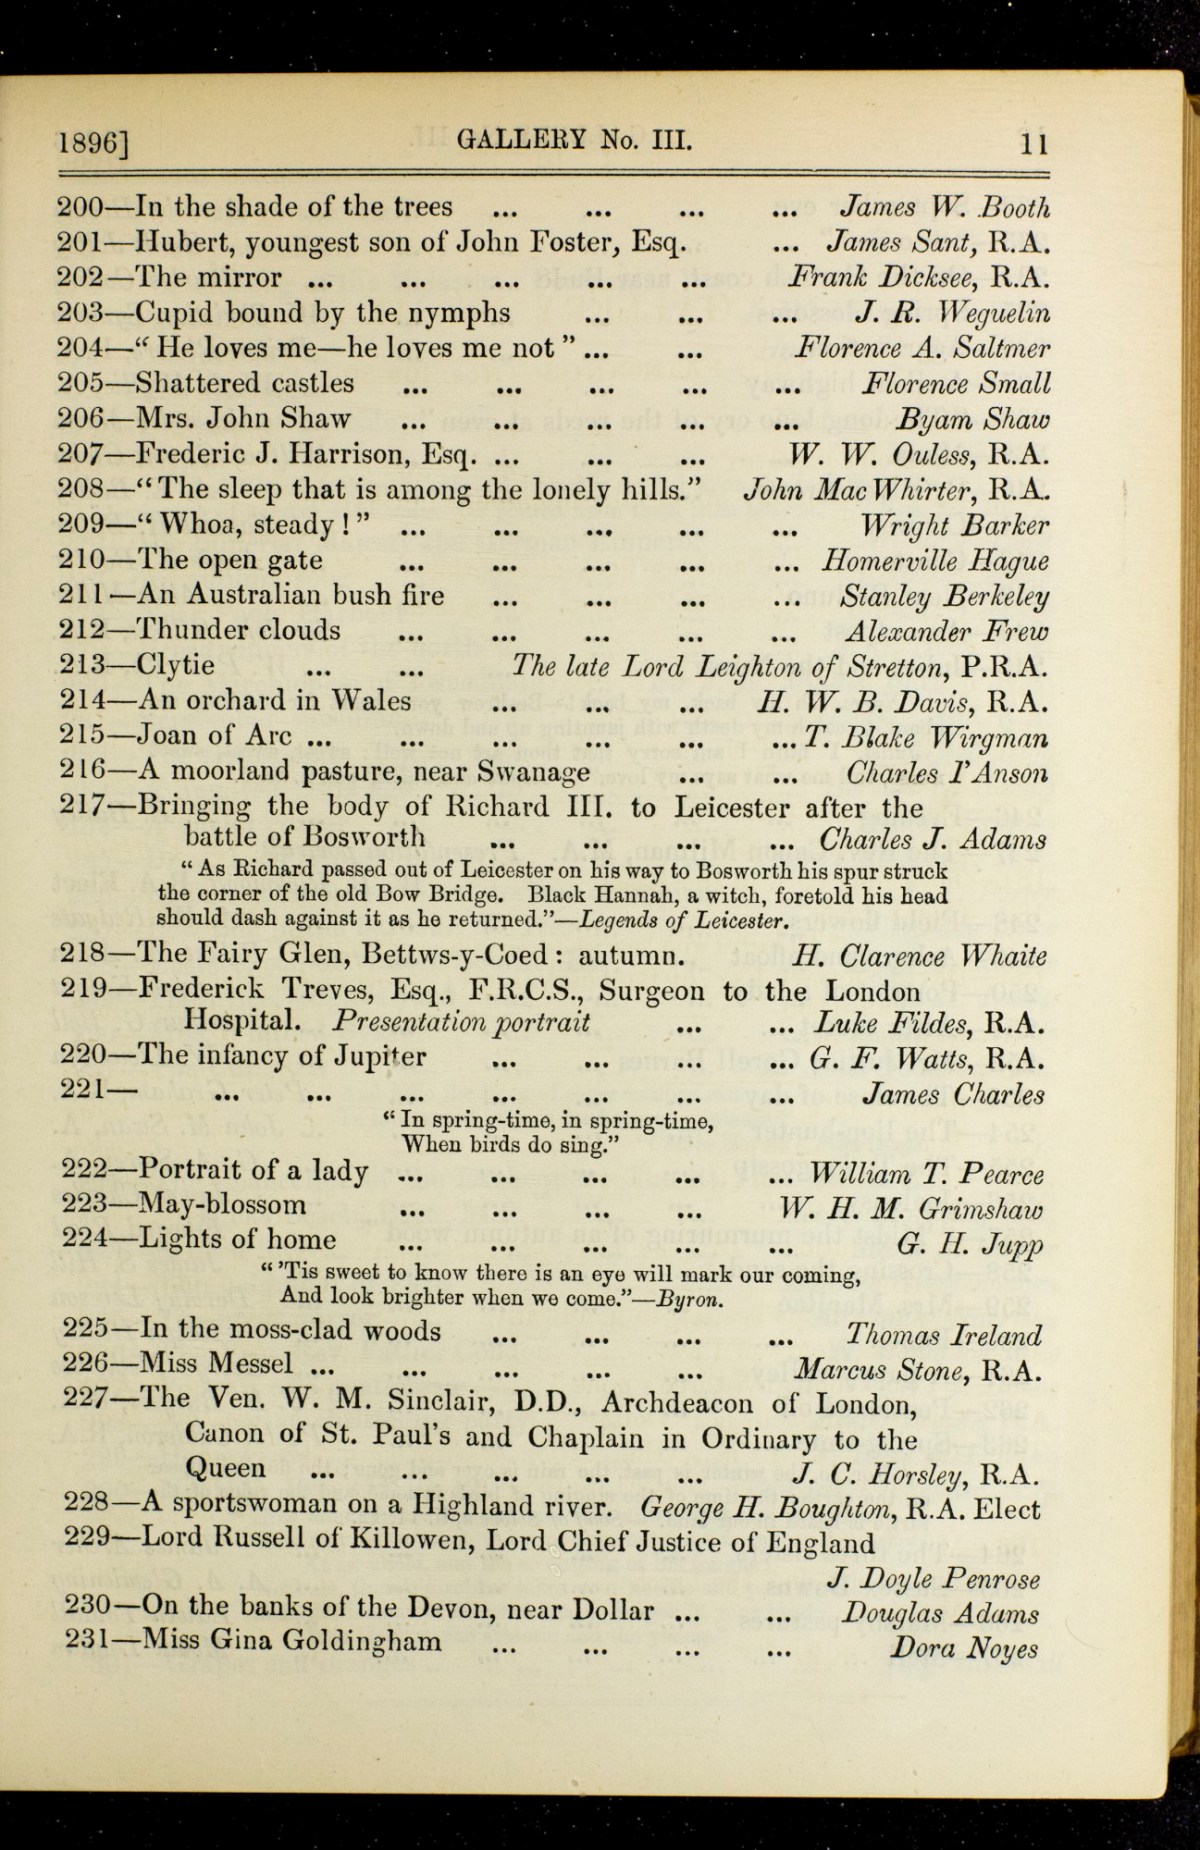 1896] GALLERY No. III. 11
200—In the shade of the trees ... ... ... ... James W. Booth
201—Hubert, youngest son of John Foster, Esq. ... James Sant, R.A.
202—The mirror ... ... ... ... ... Frank Dicksee, R.A.
203—Cupid bound by the nymphs ... ... ... J. R. Weguelin
204—“ He loves me—he loves me not ” ... ... Florence A. Saltmer
205—Shattered castles ... ... ... ... ... Florence Small
206—Mrs. John Shaw ... ... ... ... ... Byam Shaw
207—Frederic J. Harrison, Esq. ... ... ... W. W. Ouless, R.A.
208—“ The sleep that is among the lonely hills.” John MacWhirter, R.A.
209—“ Whoa, steady ! ” ... ... ... ... ... Wright Barker
210—The open gate ... ... ... ... ... Homerville Hague
211—An Australian bush fire ... ... ... ... Stanley Berkeley
212—Thunder clouds ... ... ... ... ... Alexander Frew
213—Clytie ... ... The late Lord Leighton of Stretton, P.R.A.
214—An orchard in Wales ... ... ... H. W. B. Davis, R.A.
215—Joan of Arc ... ... ... ... ... ... T. Blake Wirgman
216—A moorland pasture, near Swanage ... ... Charles I'Anson
217—Bringing the body of Richard III. to Leicester after the
battle of Bosworth ... ... ... ... Charles J. Adams
“ As Richard passed out of Leicester on his way to Bosworth his spur struck
the corner of the old Bow Bridge. Black Hannah, a witch, foretold his head
should dash against it as he returned.”—Legends of Leicester.
218—The Fairy Glen, Bettws-y-Coed : autumn. H. Clarence Whaite
219—Frederick Treves, Esq., F.R.C.S., Surgeon to the London
Hospital. Presentation portrait ... ... Luke Fildes, R.A.
220—The infancy of Jupiter ... ... ... ... G. F. Watts, R.A.
221— ... ... ... ... ... ... ... James Charles
“ In spring-time, in spring-time,
When birds do sing.”
222—Portrait of a lady ... ... ... ... ... William T. Pearce
223—May-blossom ... ... ... ... W. H. M. Grimshaw
224—Lights of home ... ... ... ... ... G. H. Jupp
“ ’Tis sweet to know there is an eye will mark our coming,
And look brighter when we come.”—Byron.
225—In the moss-clad woods ... ... ... ... Thomas Ireland
226—Miss Messel ... ... ... ... ... Marcus Stone, R.A.
227—The Ven. W. M. Sinclair, D.D., Archdeacon of London,
Canon of St. Paul’s and Chaplain in Ordinary to the
Queen ... ... ... ... ... J. C. Horsley, R.A.
228—A sportswoman on a Highland river. George H. Boughton, R.A. Elect
229—Lord Russell of Killowen, Lord Chief Justice of England
J. Doyle Penrose
230—On the banks of the Devon, near Dollar ... ... Douglas Adams
231—Miss Gina Goldingham ... ... ... ... Dora Noyes